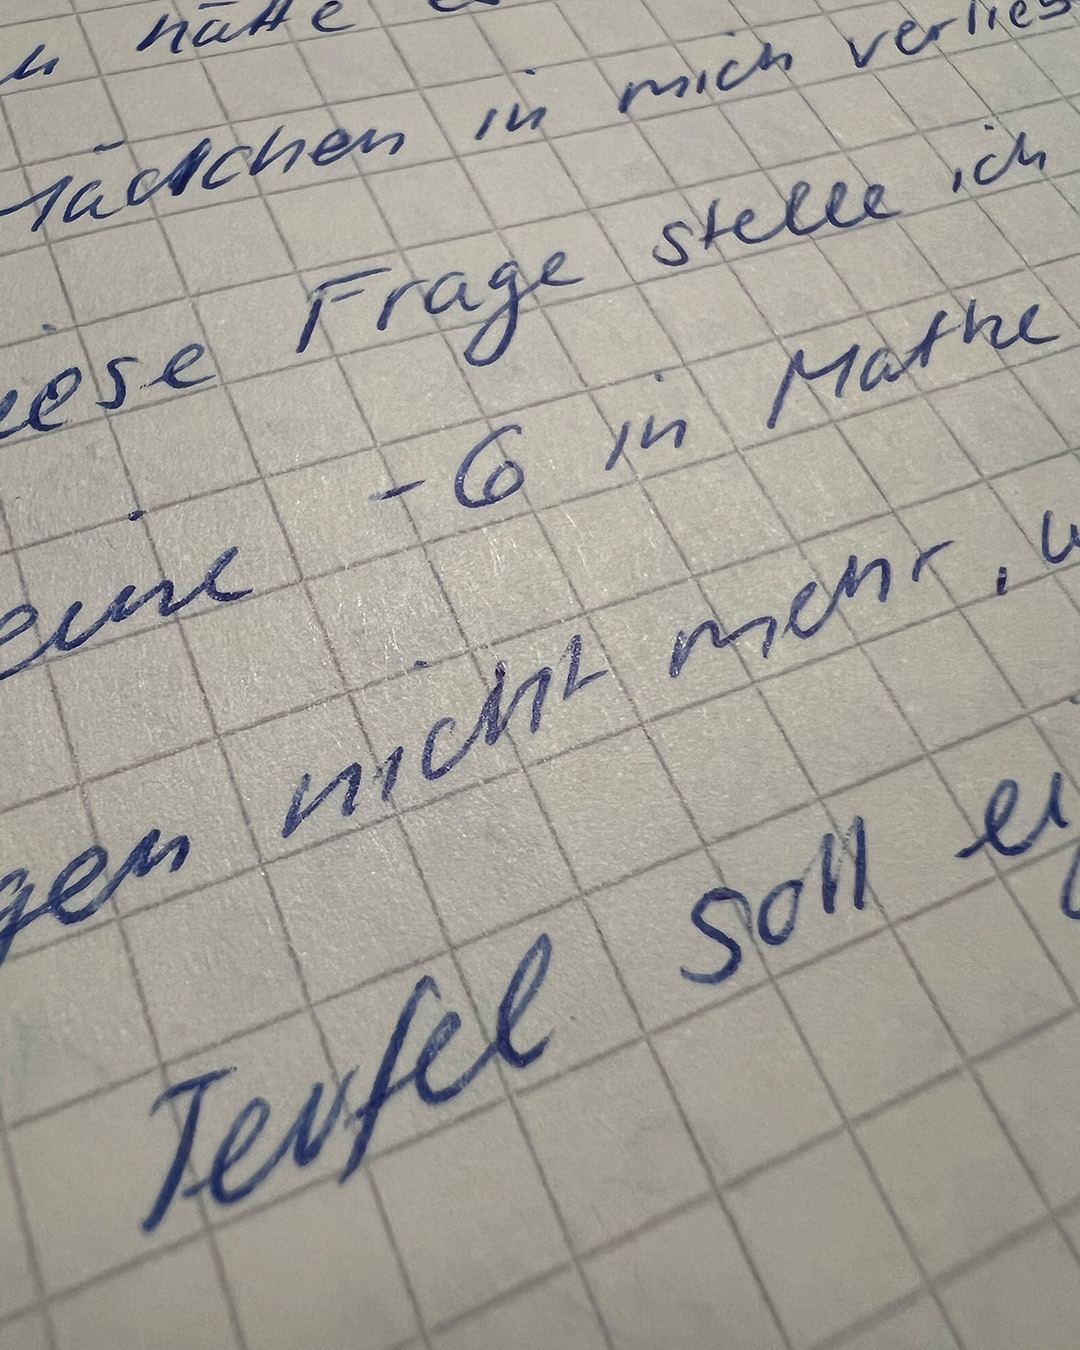 hätte
Mädchen in mich verlieb
diese Frage stelle ich
eine -6 in Mathe
gen nicht mehr, w
Teufel soll ei